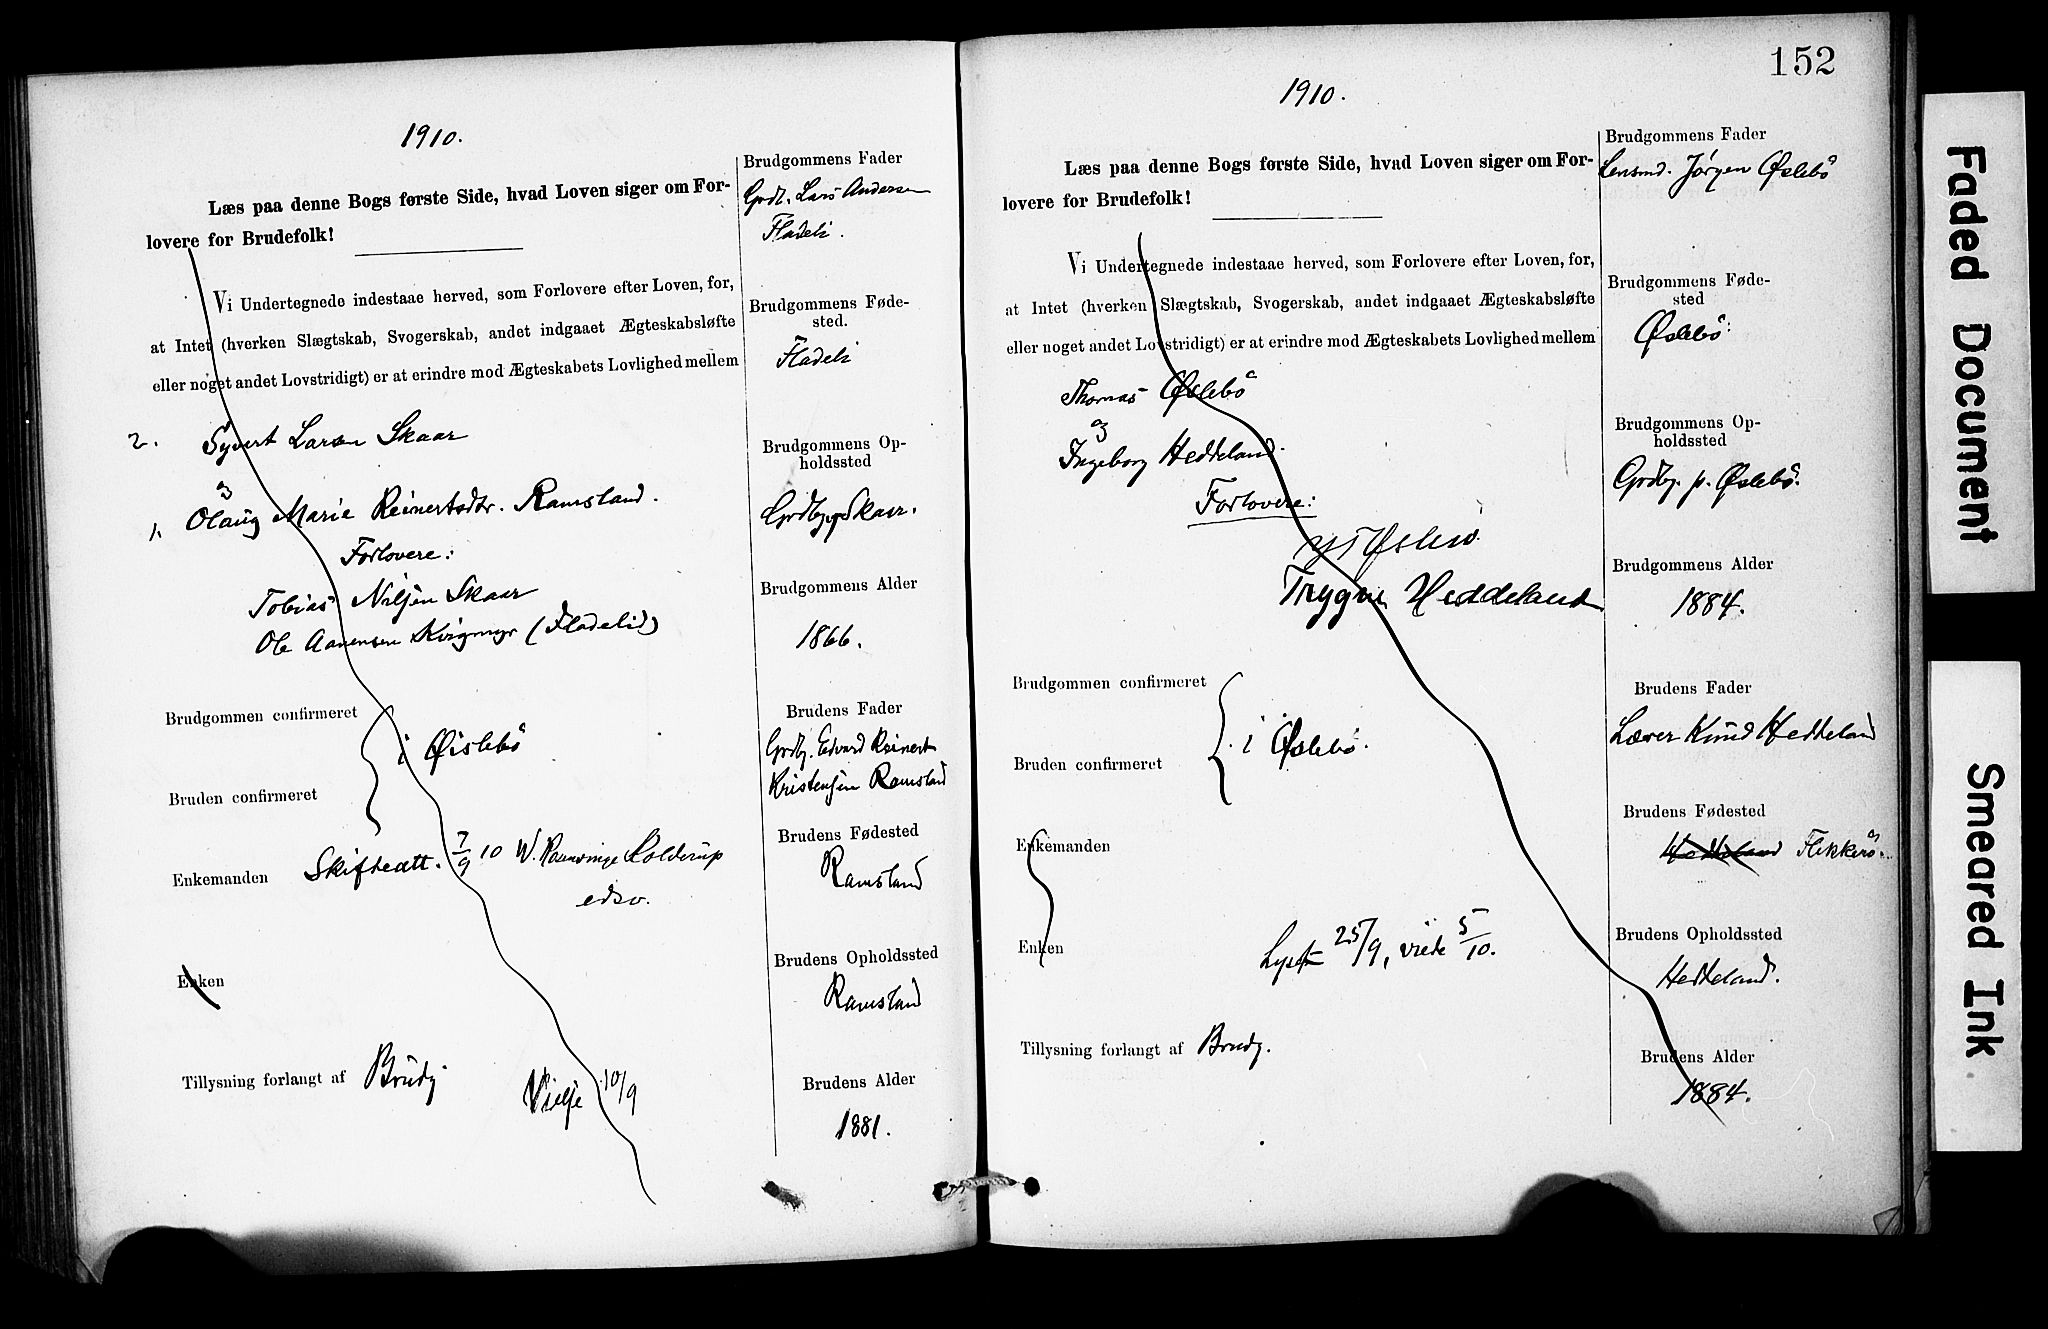 1910.
Læs paa denne Bogs første Side, hvad Loven siger om For-
lovere for Brudefolk!
Vi Undertegnede indestaae herved, som Forlovere efter Loven, for,
at Intet (hverken Slægtskab, Svogerskab, andet indgaaet Ægteskabsløfte
eller noget andet Lovstridigt) er at erindre mod Ægteskabets Lovlighed mellem
2. Syvert Larsen Skaar
og
1. Olaug Marie Reinertsdtr. Ramsland.
Forlovere:
Tobias Nilsen Skaar
Ole Aanensen Kvigmyr (Fladelid)
Brudgommen confirmeret
i Øislebø
Bruden confirmeret
Enkemanden Skifteatt. 7/9 10 W. Kolderup
edsv.
Enken
Tillysning forlangt af Brudg.
Vielse 10/9
Brudgommens Fader
Grdb. Lars Andersen
Fladeli.
Brudgommens Føde-
sted.
Fladeli
Brudgommens Op-
holdssted
Grdbg. Skaar.
Brudgommens Alder
1866.
Brudens Fader
Grdbg. Edvard Reinert
Kristensen Ramsland
Brudens Fødested
Ramsland
Brudens Opholdssted
Ramsland
Brudens Alder
1881.
152
1910.
Læs paa denne Bogs første Side, hvad Loven siger om For-
lovere for Brudefolk!
Vi Undertegnede indestaae herved, som Forlovere efter Loven, for,
at Intet (hverken Slægtskab, Svogerskab, andet indgaaet Ægteskabsløfte
eller noget andet Lovstridigt) er at erindre mod Ægteskabets Lovlighed mellem
Thomas Øslebø
og
Ingeborg Heddeland.
Forlovere:
Øslebø.
Trygve Heddeland
Brudgommen confirmeret
i Øslebø.
Bruden confirmeret
Enkemanden
Enken
Lyst 25/9, viede 5/10.
Tillysning forlangt af Brudg.
Brudgommens Fader
Lensmd. Jørgen Øslebø
Brudgommens Føde-
sted
Øslebø.
Brudgommens Op-
holdssted
Grdbg. p. Øslebø.
Brudgommens Alder
1884.
Brudens Fader
Lærer Knud Heddeland
Brudens Fødested
Heddeland Flekkerø.
Brudens Opholdssted
Heddeland.
Brudens Alder
1884.
Faded Document
Smeared Ink